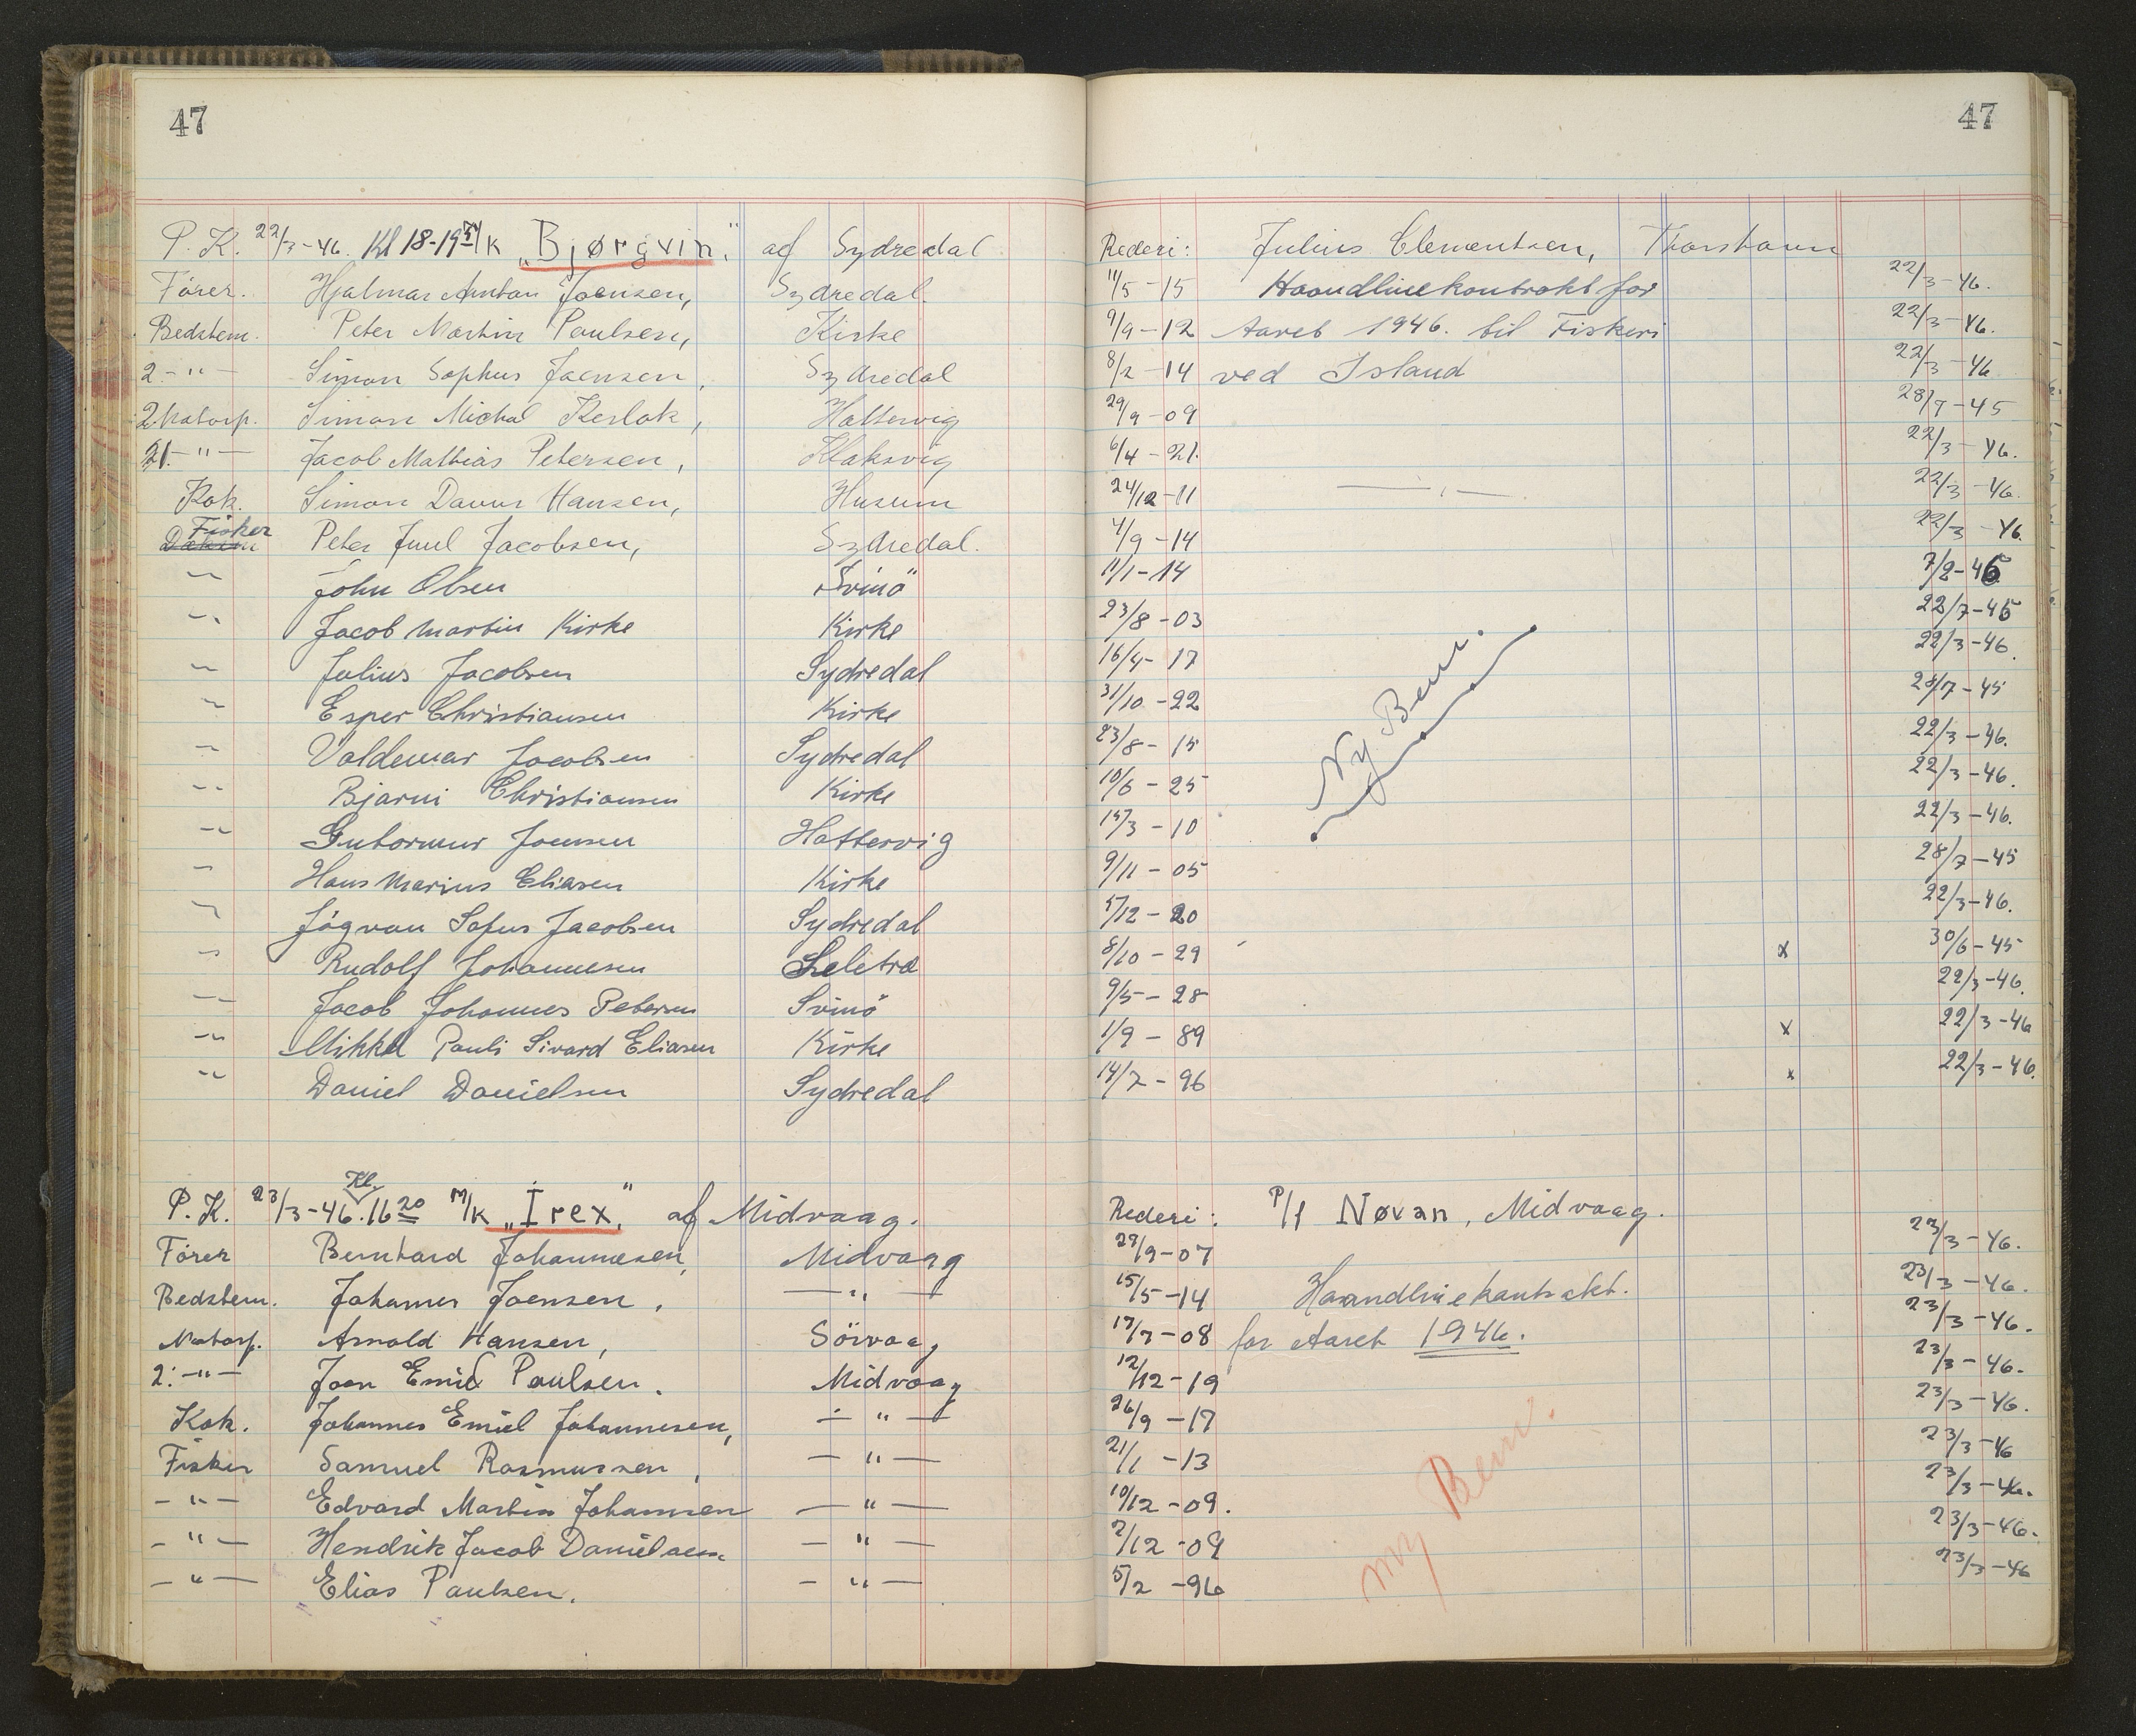 47
P. K. 22/3-46. Kl 18-19 M/k „Bjørgvin“ af Sydredal
Förer. Hjalmar Anton Joensen, Sydredal.
Bedstem. Peter Martin Poulsen, Kirke
2 - " - Simon Sophus Joensen, Sydredal
2 Motorp. Simon Michal Hattervig
21. - " - Jacob Mathias Petersen, Klaksvig
Kok. Simon Davur Hansen, Husum
Fisker
Peter Juul Jacobsen, Sydredal.
" John Olsen Svinö
" Jacob Martin Kirke Kirke
" Julius Jacobsen Sydredal
" Esper Christiansen Kirke
" Valdemar Jacobsen Sydredal
" Bjarni Christiansen Kirke
" Gutormur Joensen Hattervig
" Hans Marius Eliasen Kirke
" Jógvan Sofus Jacobsen Sydredal
" Rudolf Johannesen Seletræ
" Jacob Johannes Petersen Svinö
" Mikkel Pauli Sivard Eliasen Kirke
" Daniel Danielsen Sydredal
Kl.
P. K. 23/3-46. 16 20 M/k „Irex“ af Midvaag.
Förer Bernhard Johannesen, Midvaag
Bedstem. Johannes Joensen, - " -
Motorp. Arnold Hansen, Sörvaag
2. - " - Joen Emil Poulsen. Midvaag
Kok. Johannes Emiel Johannesen, - " -
Fisker Samuel Rasmussen, - " -
- " - Edvard Martin Johannsen - " -
- " - Hendrik Jacob Danielsen - " -
- " - Elias Poulsen. - " -
47
Rederi: Julius Clementsen, Thorshavn
11/5 - 15 Haandlinekontrakt for 22/3-46.
9/9 - 12 Aaret 1946. til Fiskeri 22/3-46.
8/2 - 14 ved Island 22/3-46
29/9 - 09 28/7-45
6/4 - 21. 22/3-46.
24/12 - 11 - " - 22/3-46.
4/9 - 14 22/3-46.
11/1 - 14 7/2-46
23/8 - 03 22/7-45
16/4 - 17 22/3-46.
31/10 - 22 28/7-45
23/8 - 15 22/3-46.
10/6 - 25 22/3-46.
15/3 - 10 22/3-46.
9/11 - 05 28/7-45
5/12 - 20 22/3-46.
8/10 - 29 x 30/6-45
9/5 - 28 22/3-46.
1/9 - 89 x 22/3-46
14/7 - 96 x 22/3-46.
Ny Bem.
Rederi: P/f Nøvan, Midvaag.
29/9-07 23/3-46.
15/5-14 Haandlinekontrakt. 23/3-46.
17/7-08 for Aaret 1946. 23/3-46.
12/12-19 23/3-46.
26/9-17 23/3-46.
21/1-13 23/3-46
10/12-09. 23/3-46.
2/12-09 23/3-46.
5/2-96 23/3-46
ny Bem.